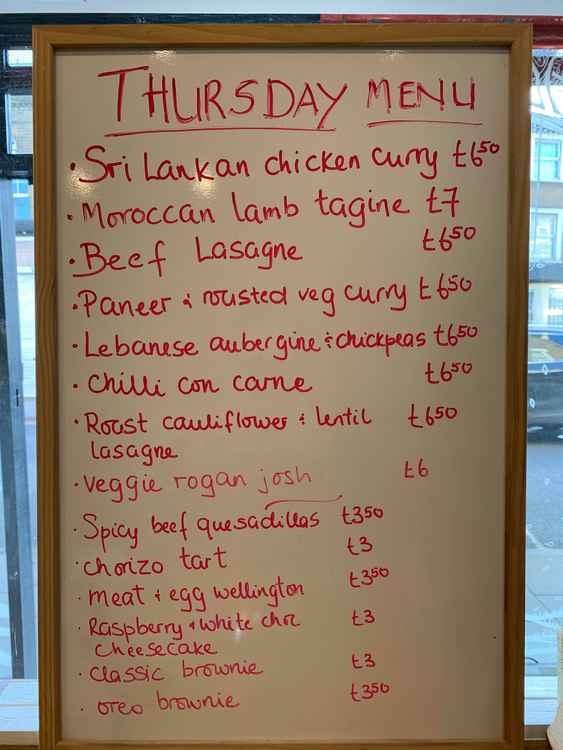 THURSDAY MENU
• Sri Lankan chicken curry £6⁵⁰
• Moroccan lamb tagine £7
• Beef Lasagne £6⁵⁰
• Paneer & roasted veg curry £6⁵⁰
• Lebanese aubergine & chickpeas £6⁵⁰
• Chilli con carne £6⁵⁰
• Roast cauliflower & lentil £6⁵⁰
lasagne
• Veggie rogan josh £6
• Spicy beef quesadillas £3⁵⁰
• chorizo tart £3
• meat & egg wellington £3⁵⁰
• Raspberry & white choc £3
cheesecake
• classic brownie £3
• oreo brownie £3⁵⁰